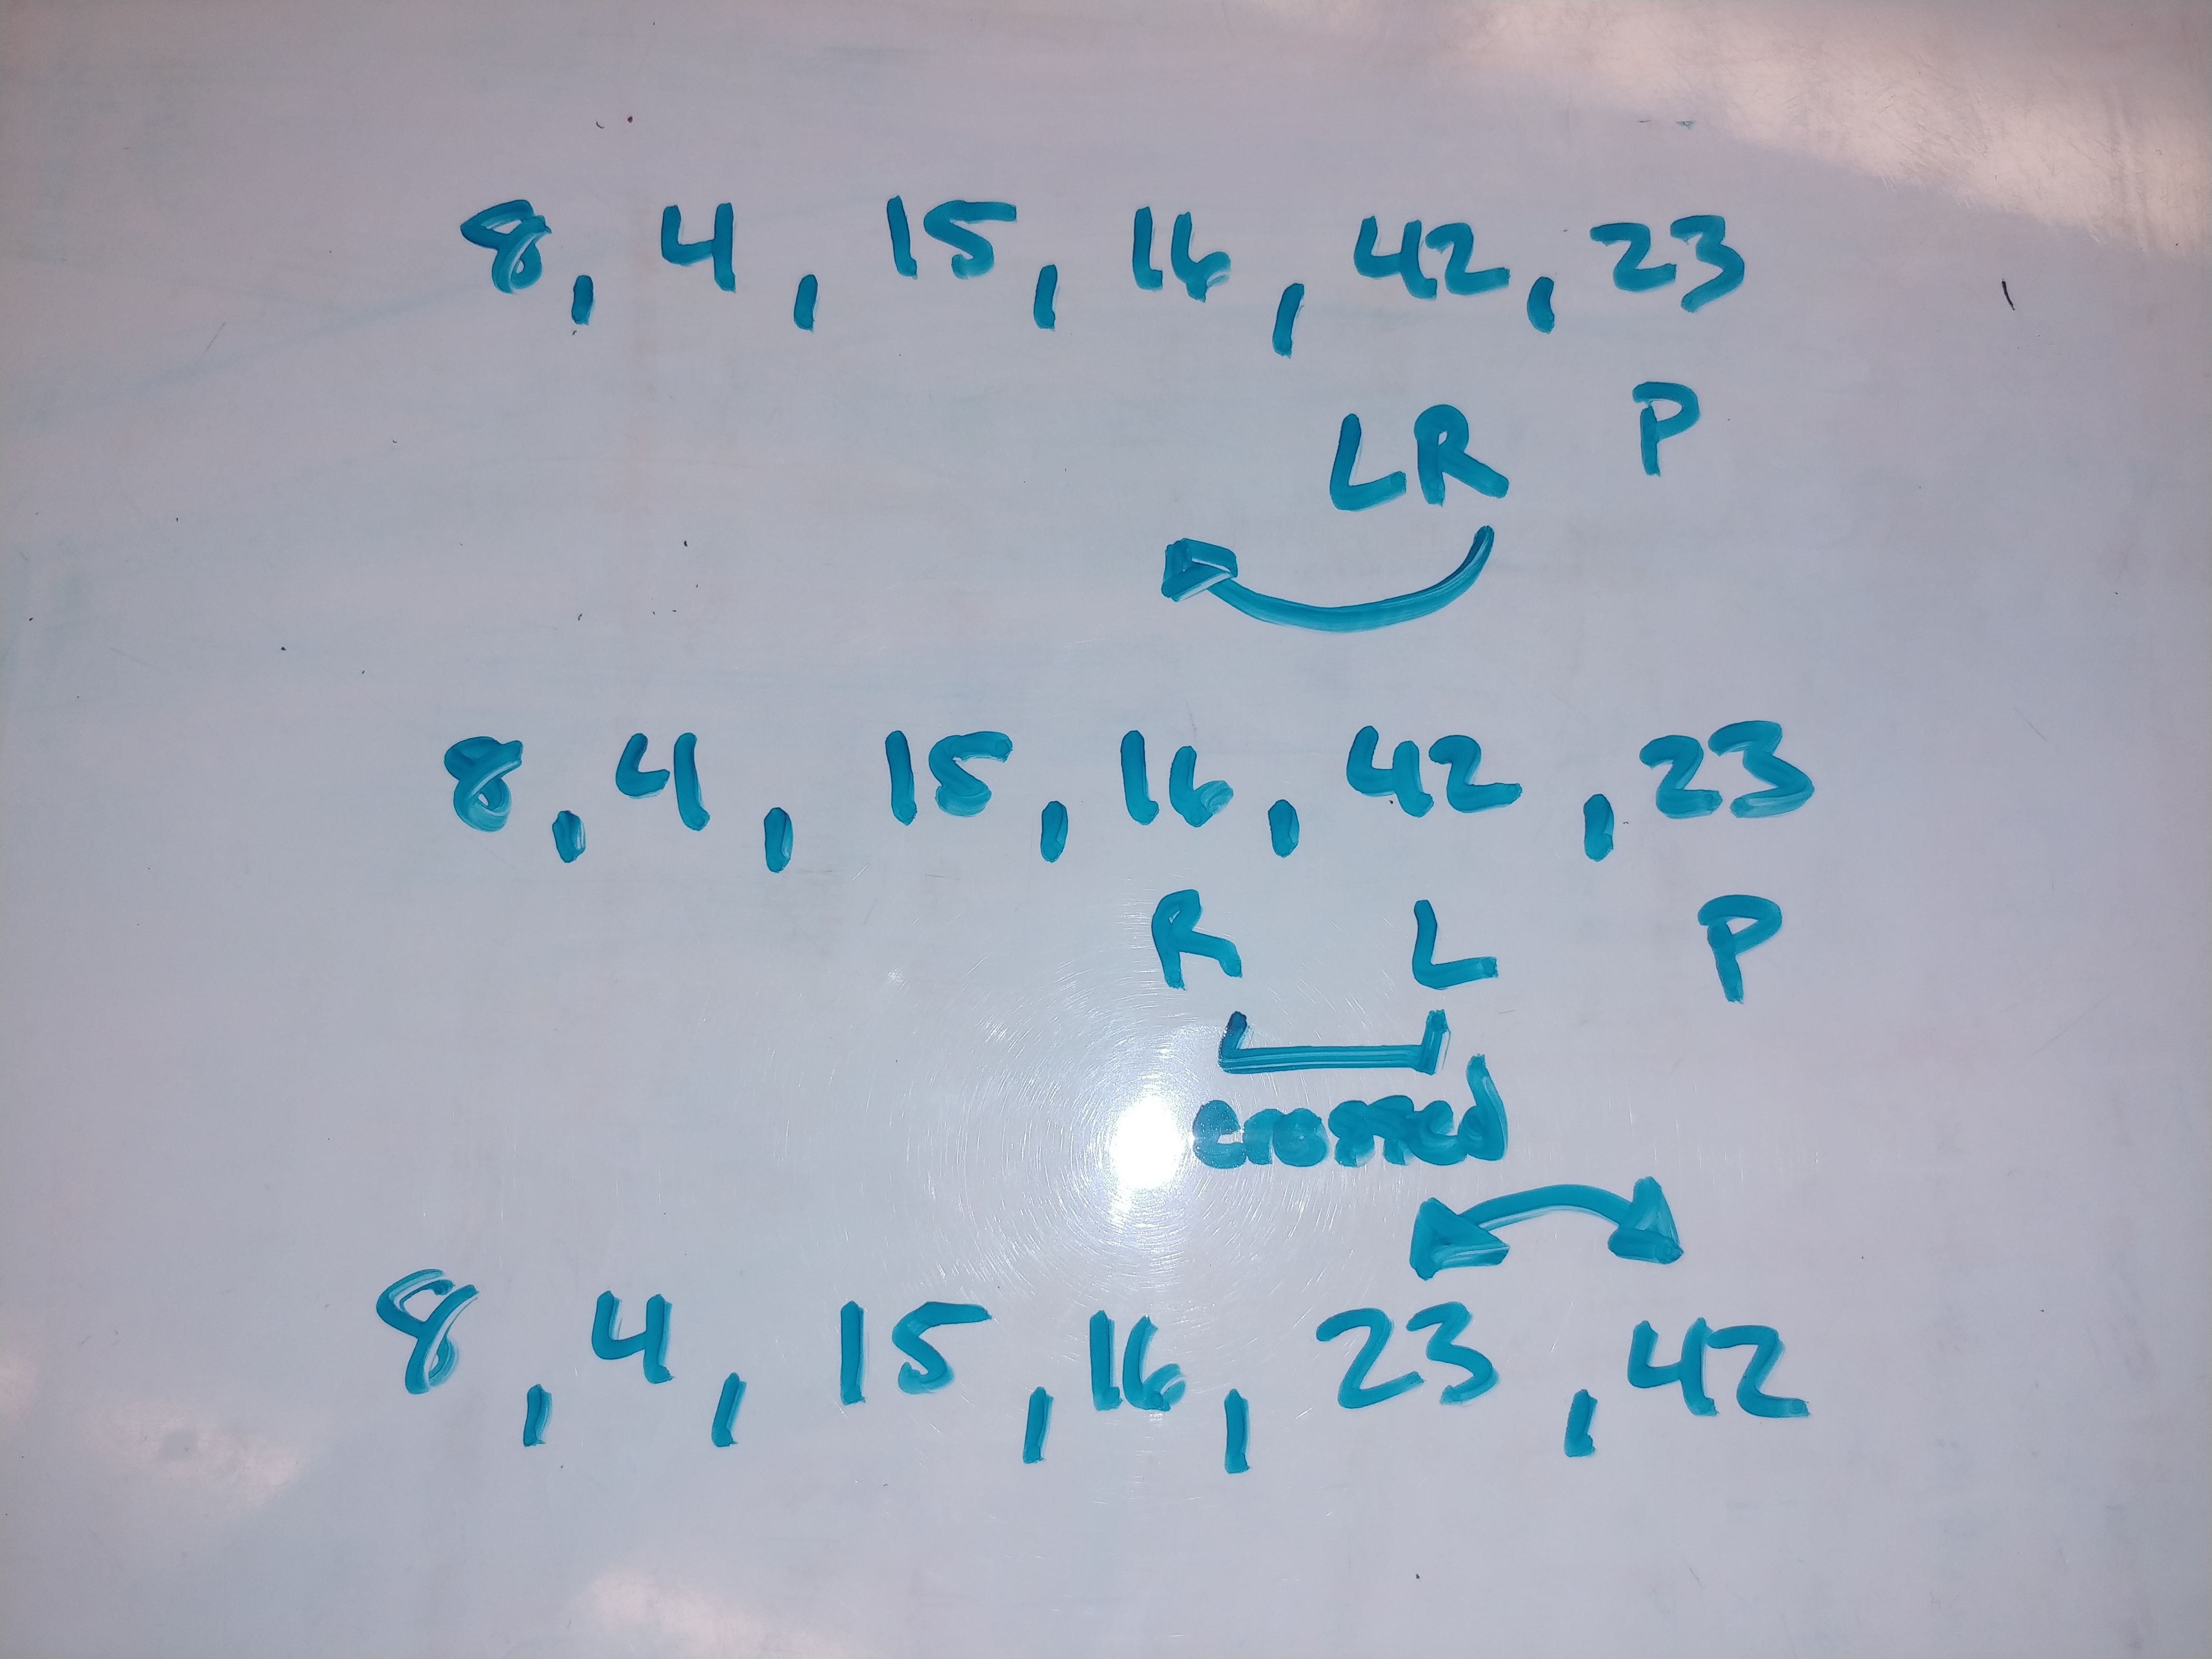 8, 4, 15, 16, 42, 23
LR P
8, 4, 15, 16, 42, 23
R L P
crossed
8, 4, 15, 16, 23, 42